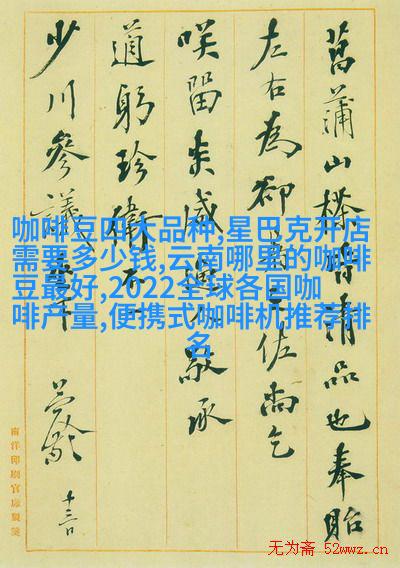 咖啡豆四大品种,星巴克开店
需要多少钱,云南哪里的咖啡
豆最好,2022全球各国咖
啡产量,便携式咖啡机推荐排
名
菖蒲山品也奉貽
左右為卻佐尚乞
咲留幸感承
道躬珍衛
少川參議
十三日
南洋印刷官廠製箋
无为斋 52wwz.cn